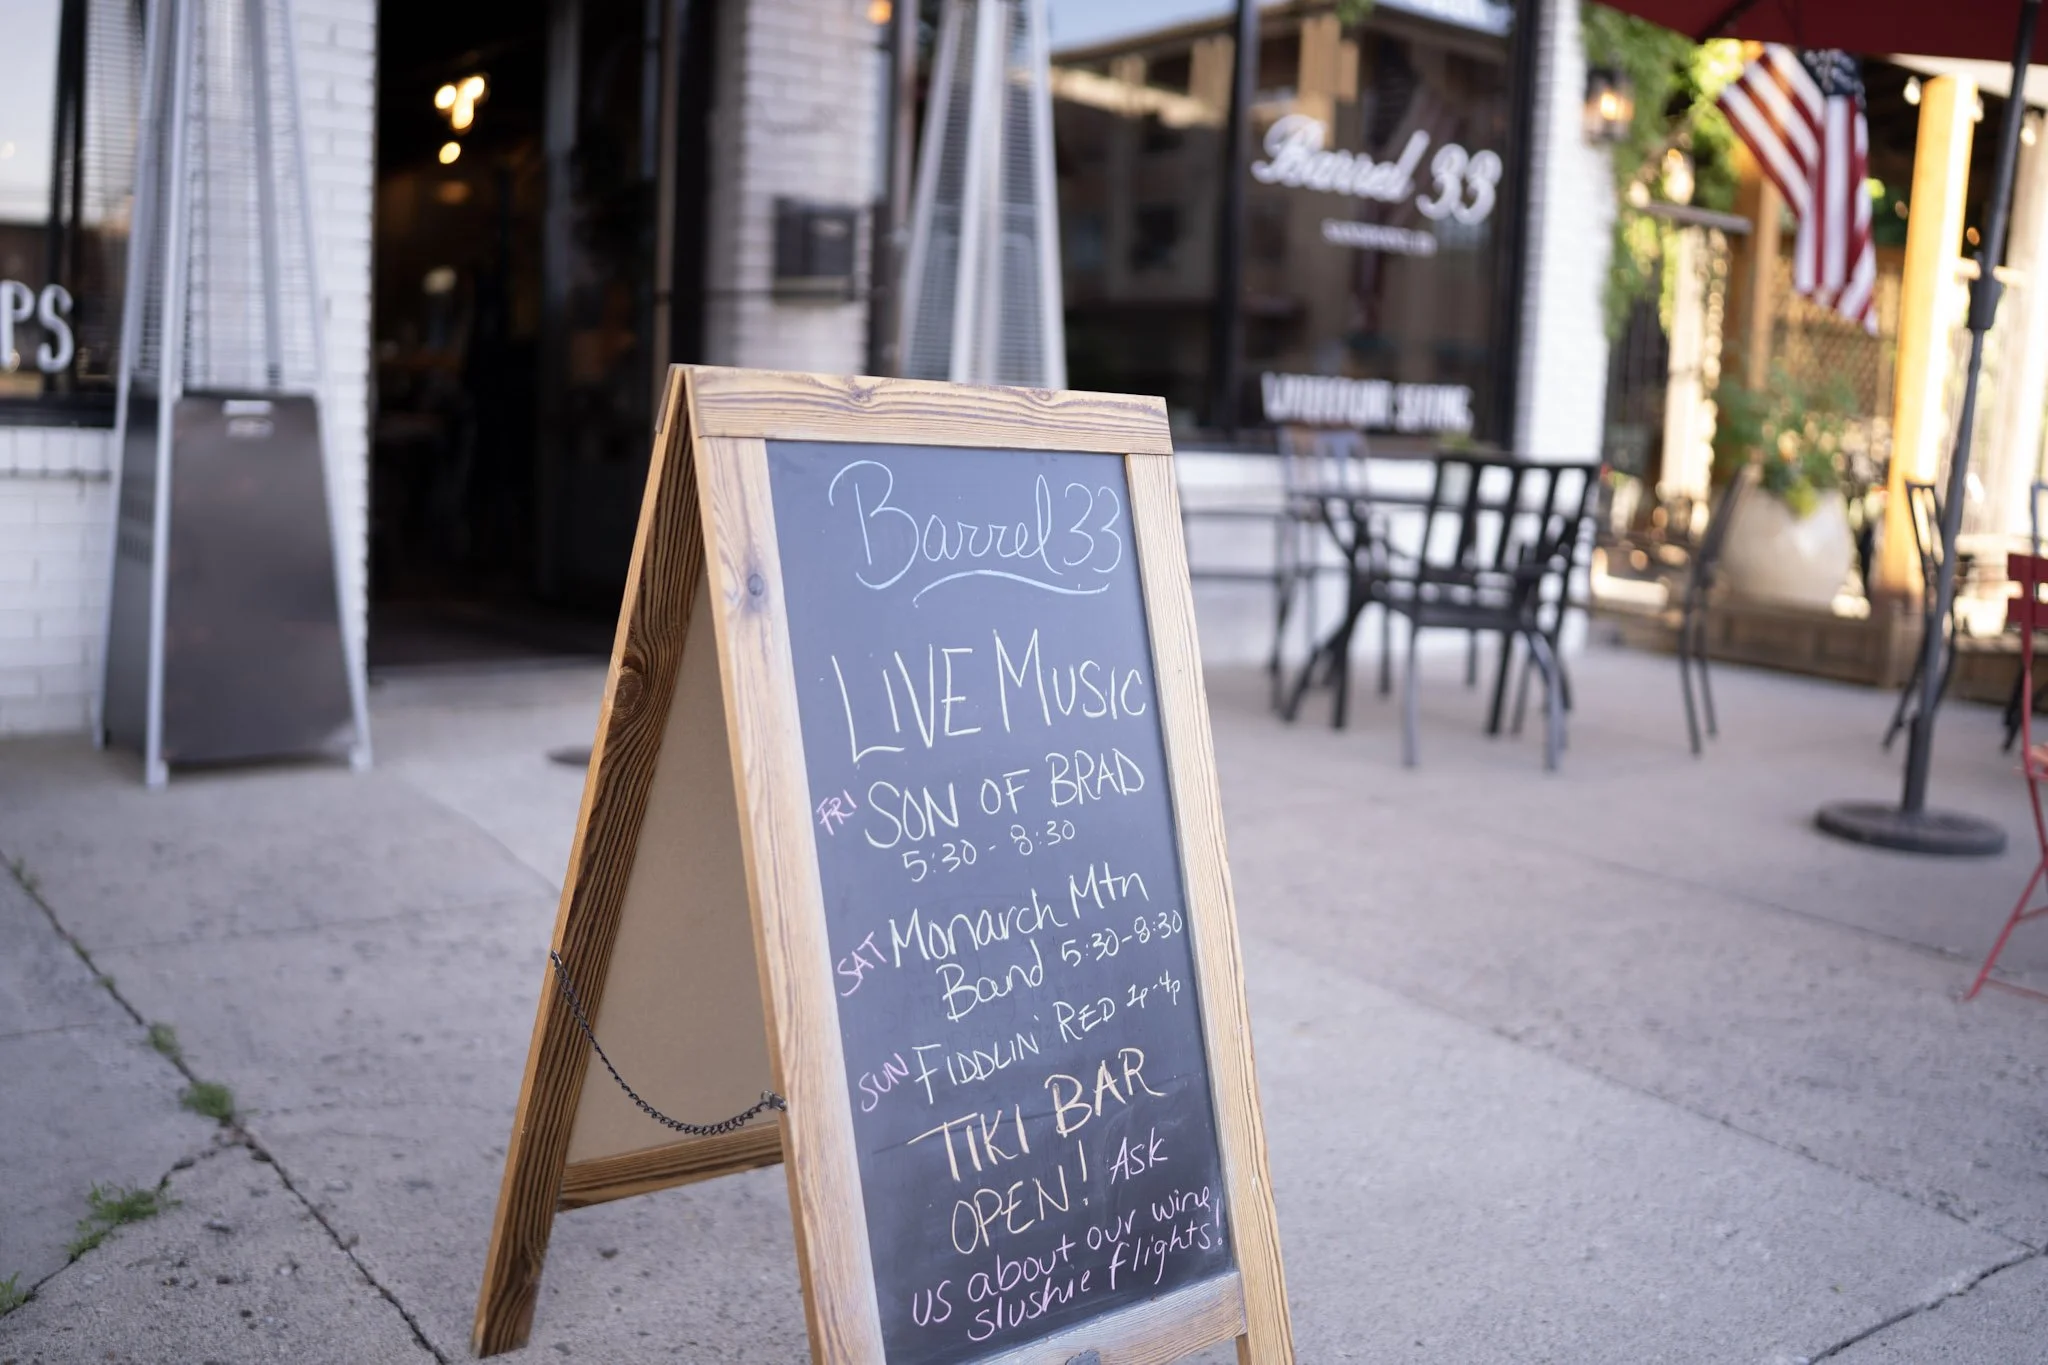 PS
Barrel 33
Barrel 33
LIVE MUSIC
FRI SON OF BRAD
5:30 - 8:30
SAT Monarch Mtn
Band 5:30-8:30
SUN FIDDLIN' RED 1p-4p
TIKI BAR
OPEN! Ask
us about our wine
slushie flights!